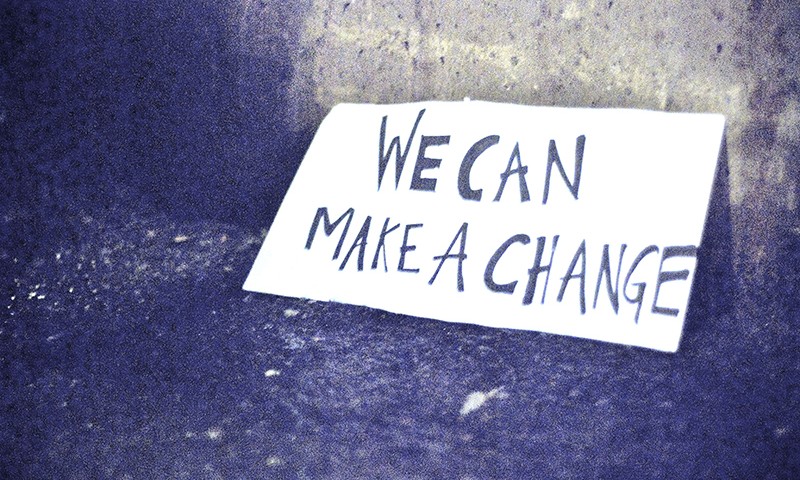 WE CAN
MAKE A CHANGE